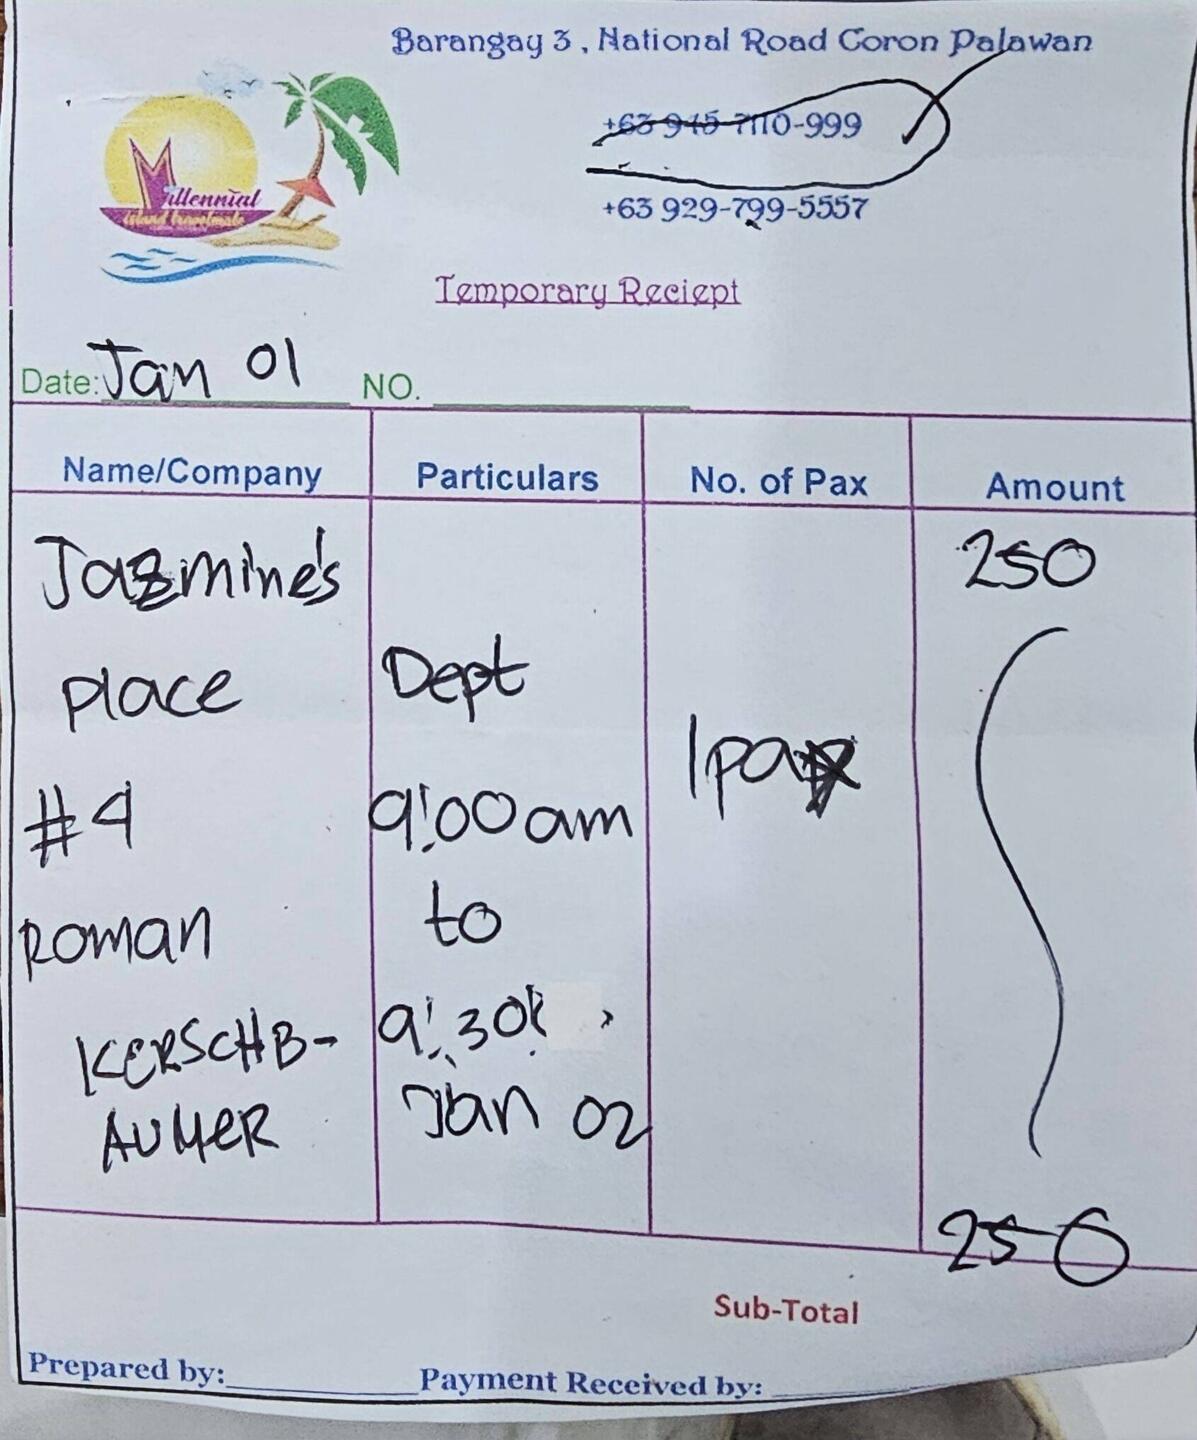 Barangay 3 , National Road Coron Palawan
+63 945-7110-999
+63 929-799-5557
Millennial
island travelmate
Temporary Reciept
Date: Jan 01 NO.
Name/Company Particulars No. of Pax Amount
Jazmine's 250
place Dept
1 pax
#4 9:00 am
Roman to
KERSCHB- 9:30
AUMER Jan 02
250
Sub-Total
Prepared by: Payment Received by: